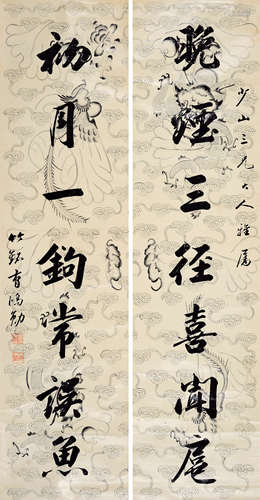 少山三兄大人雅属
晚烟三径喜闻扈
初月一钩常误鱼
竹铭曹鸿勋